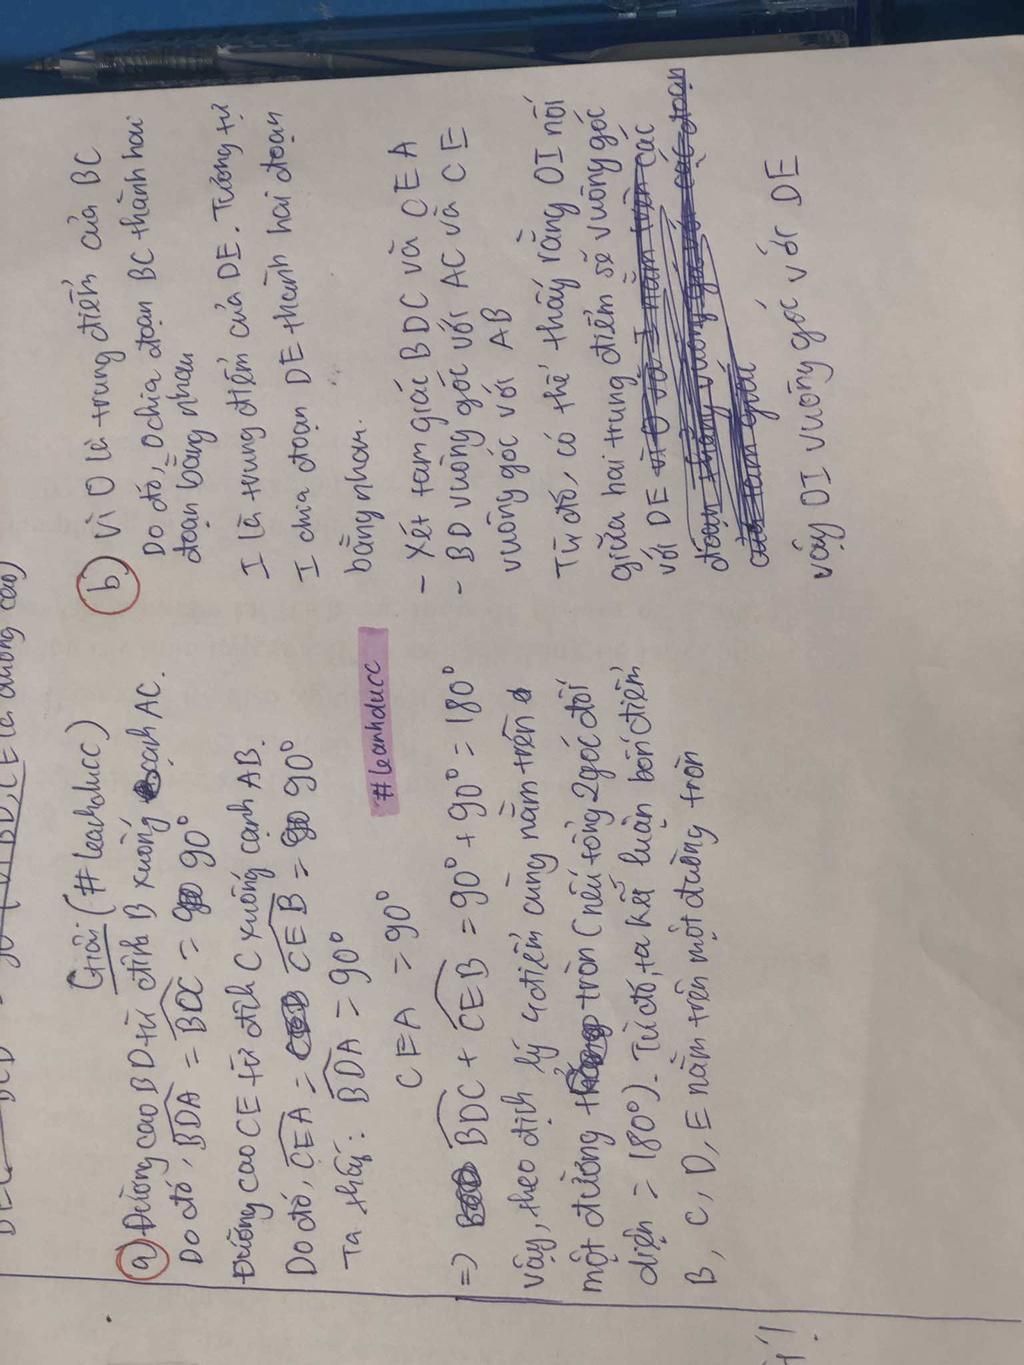 Giải (#leanhducc)
a) Đường cao BD từ đỉnh B xuống cạnh AC.
Do đó, BDA = BCC = 90°
Đường cao CE từ đỉnh C xuống cạnh AB.
Do đó, CEA = CEB = 90°
Ta thấy: BDA = 90°
CEA = 90°
#leanhducc
=> BDC + CEB = 90° + 90° = 180°
Vậy, theo định lý 4 điểm cùng nằm trên
một đường tròn (nếu tổng 2 góc đối
diện = 180°). Từ đó, ta kết luận bốn điểm
B, C, D, E nằm trên một đường tròn
b) Vì O là trung điểm của BC
Do đó, O chia đoạn BC thành hai
đoạn bằng nhau
I là trung điểm của DE. Tương tự
I chia đoạn DE thành hai đoạn
bằng nhau.
- Xét tam giác BDC và CEA
- BD vuông góc với AC và CE
vuông góc với AB
Từ đó, có thể thấy rằng OI nối
giữa hai trung điểm sẽ vuông góc
với DE vì O và I nằm trên các
đoạn thẳng vuông góc với các đoạn
của tam giác
vậy OI vuông góc với DE